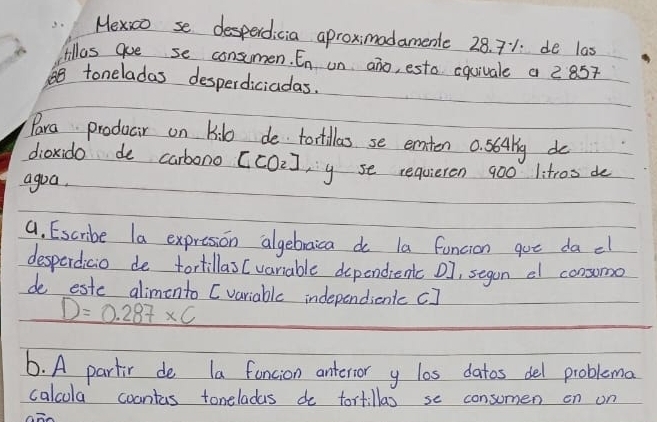 Mexico se desperdicia aproximadamente 28.7% de las
tillas que se consumen. En un año, esto equivale a 2 857
toneladas desperdiciadas.
Para producir un kilo de tortillas se emiten 0.564kg de
dioxido de carbono [CO2], y se requieren 900 litros de
agua.
a. Escribe la expresión algebraica de la función que da el
desperdicio de tortillas [variable dependiente D], segun el consumo
de este alimento [variable independiente C]
D = 0.287 x C
b. A partir de la funcion anterior y los datos del problema
calcula cuantas toneladas de tortillas se consumen en un
año